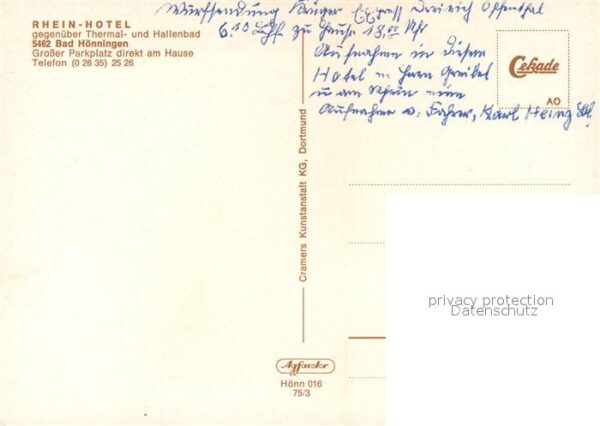 RHEIN-HOTEL
gegenüber Thermal- und Hallenbad
5462 Bad Hönningen
Großer Parkplatz direkt am Hause
Telefon (0 26 35) 25 26
Wurfsendung Krüger Express
6.10 zu Hause 18.00 Uhr
Aufnahmen in diesem
Hotel m. Herrn
u am Rhein eine
Aufnahme v. Fahrer, Karl Heinz
Cekade
AO
Cramers Kunstanstalt KG, Dortmund
Agfacolor
Hönn 016
75/3
privacy protection
Datenschutz